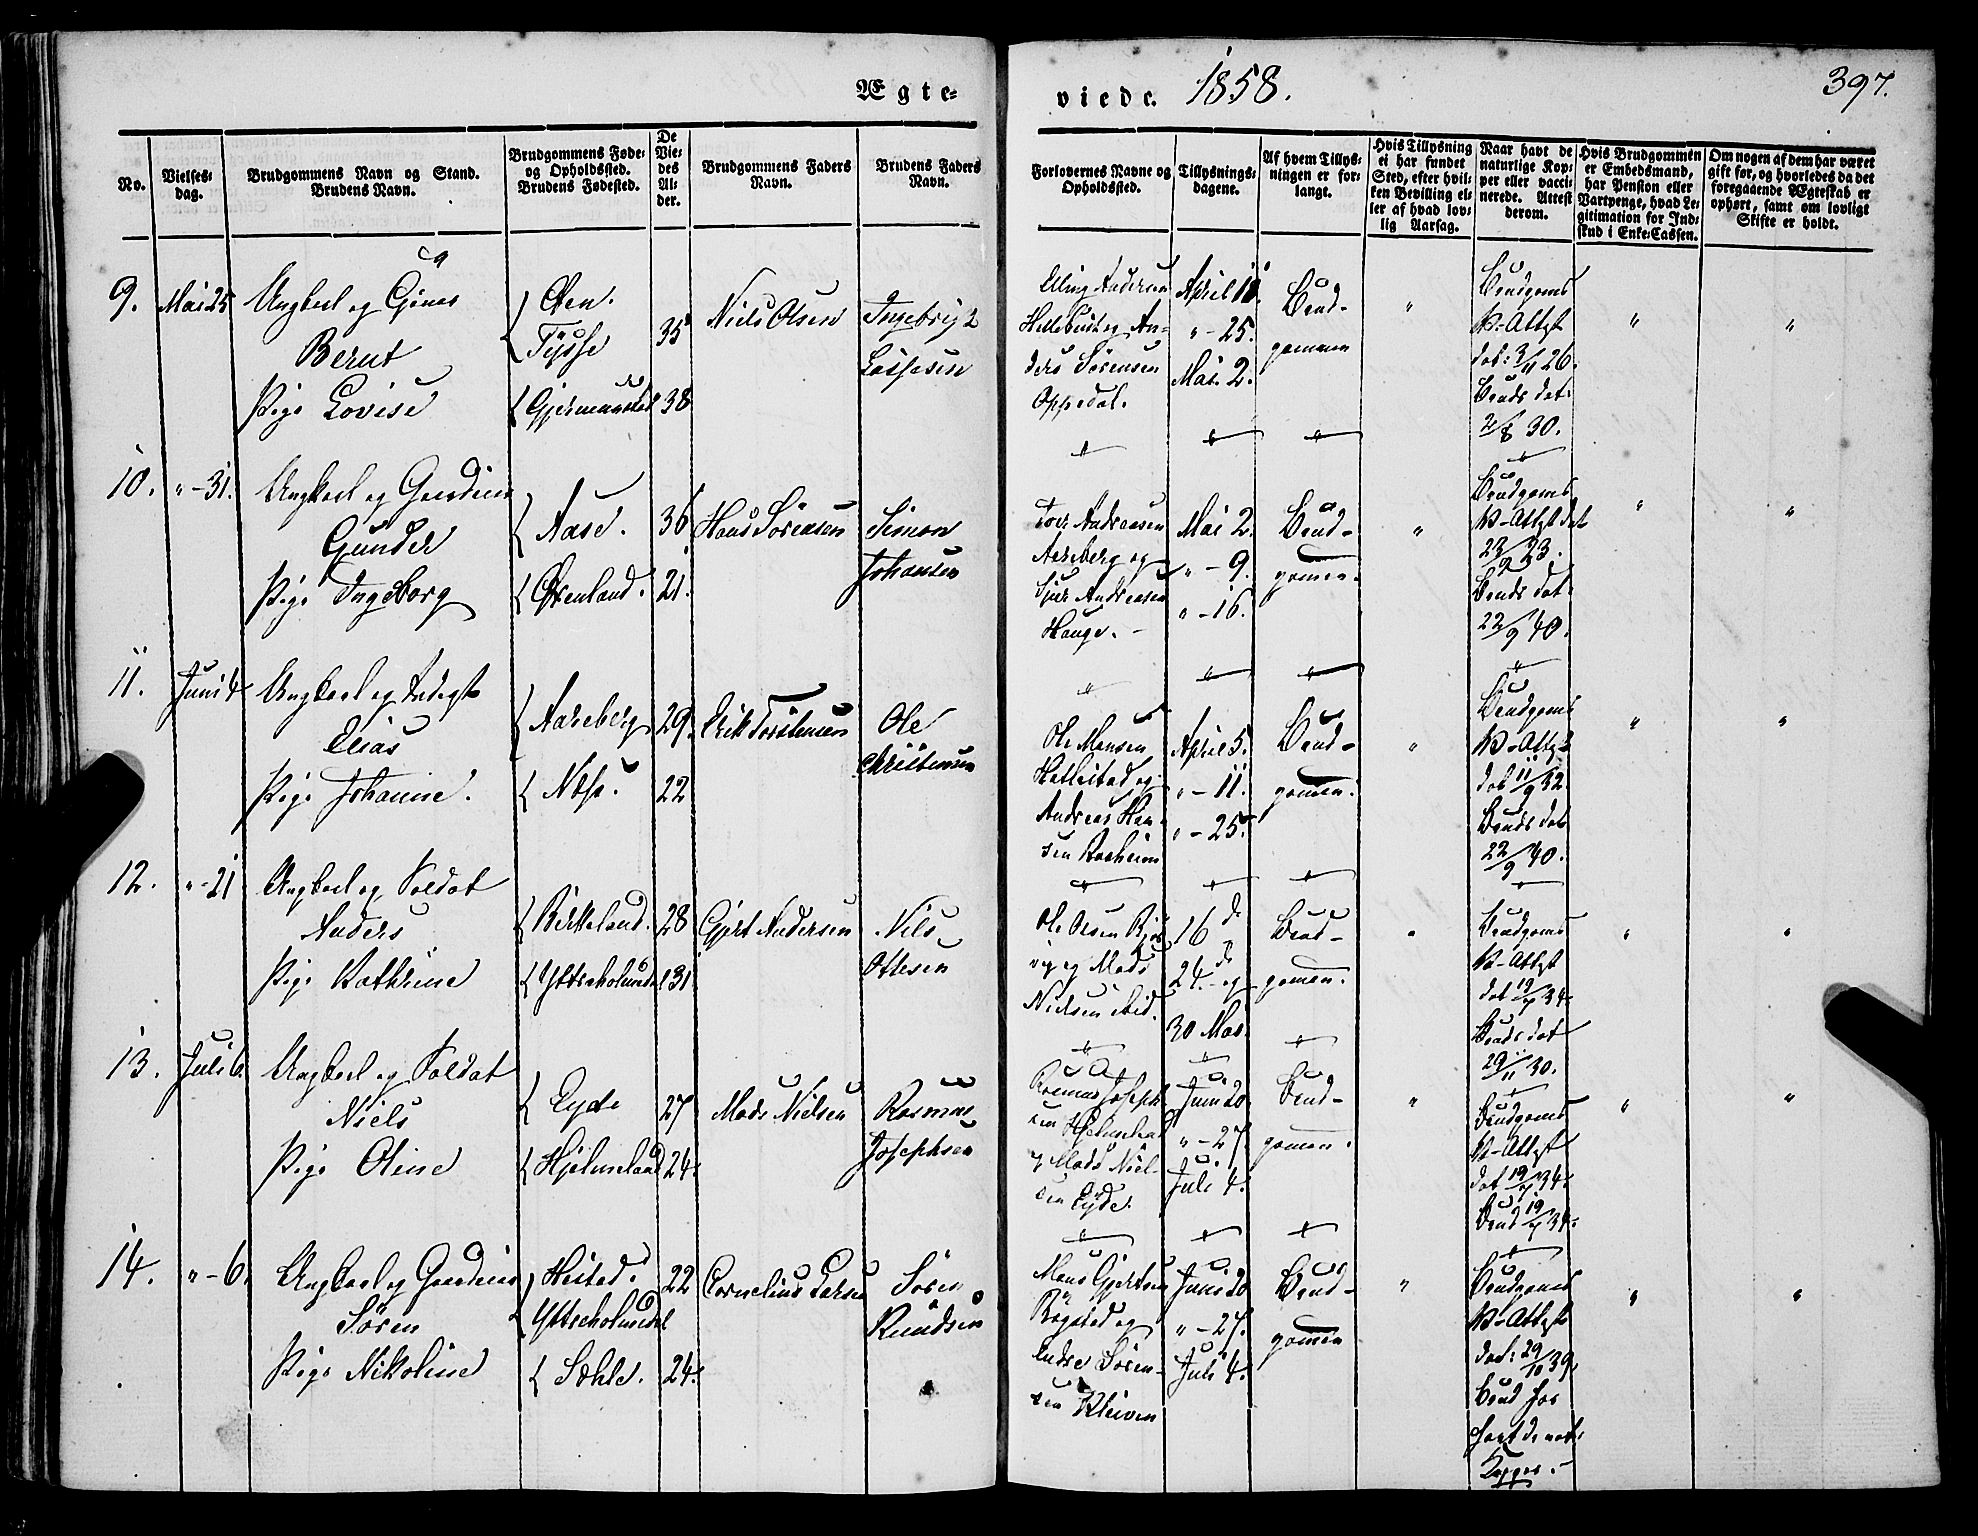 Ægte-
viede. 1858.
397.
No.
Vielses-
dag.
Brudgommens Navn og Stand.
Brudens Navn.
Brudgommens Føde-
og Opholdssted.
Brudens Fødested.
De
Vie-
des
Al-
der.
Brudgommens Faders
Navn.
Brudens Faders
Navn.
Forlovernes Navne og
Opholdssted.
Tillysnings-
dagene.
Af hvem Tillys-
ningen er for-
langt.
Hvis Tillysning
ei har fundet
Sted, efter hvil-
ken Bevilling el-
ler af hvad lov-
lig Aarsag.
Naar havt de
naturlige Kop-
per eller vacci-
nerede. Attest
derom.
Hvis Brudgommen
er Embedsmand,
har Pension eller
Vartpenge, hvad Le-
gitimation for Ind-
skud i Enke-Cassen.
Om nogen af dem har været
gift før, og hvorledes da det
foregaaende Ægteskab er
ophørt, samt om lovligt
Skifte er holdt.
9. Mai 25 Ungkarl og
Berent
Pige Lovise
Tysse
35
38
Niels Olsen
Elling Andersen
ders Sörensen
Oppedal.
April 18.
" - 25.
Mai 2.
Brud-
gommen
Brudgoms
V-Attest
dat: 3/11 26.
Bruds dat:
30.
10. " - 31. Ungkarl og Gaardm
Gunder
Pige Ingeborg
Aase.
36
21.
Hans Sörensen
Simon
Johansen
Andreassen
Aareberg og
Andreasen
Hauge. -
Mai 2.
" - 9.
" - 16.
Brud-
gomen.
Brudgoms
V-Attest dat
Bruds dat:
22/9 40.
11. Juni 4 Ungkarl og Inderst
Elias
Pige Johanne.
Aareberg
29.
22
Erik Torstensen
Ole
Christensen
Ole Monsen
Hatlestad og
Andreas Han-
sen
April 5.
" - 11.
" - 25.
Brud-
gomen.
Brudgoms
V-Attest
dat 11/9 32.
Bruds dat
22/9 40.
12. " - 21 Ungkarl og Soldat
Anders
Pige Kathrine
Birkeland.
28
31
Gjert Andersen
Nils
Ottesen
Ole Olsen
og Mads
Nielsen ibid.
16 d
24. d og
30 Mai.
Brud-
gomen.
Brudgoms
V-Attest
dat 19/7 34.
Bruds dat
29/11 30.
13. Juli 6. Ungkarl og Soldat
Niels
Pige Oline
Eyde
Hjelmeland
27
24.
Mads Nielsen
Rasmus
Josephsen
Rasmus Joseph-
sen Hjelmeland
og Mads Niel-
sen Eyde.
Juni 20
" - 27
Juli 4.
Brud-
gomen.
Brudgoms
V-Attest
dat 19/7 34.
Brud 19/7 34.
14. " - 6. Ungkarl og
Sören
Pige Nikoline
Hestad.
Ytreholmedal
Sæhle.
22
24.
Cornelius Larsen
Sören
Knudsen
Mons Gjertsen
og
Endre Sören-
sen Kleiven
Juni 20
" - 27.
Juli 4.
Brud-
gomen
Brudgoms
V-Attest
dat: 29/10 39.
Brud har
havt de nat.
Kopper. -